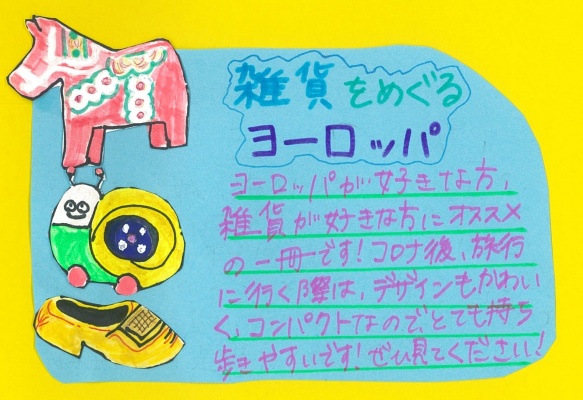 雑貨をめぐる
ヨーロッパ
ヨーロッパが好きな方、
雑貨が好きな方にオススメ
の一冊です!コロナ後、旅行
に行く際は、デザインもかわい
く、コンパクトなので、とても持ち
歩きやすいです!ぜひ見てください!